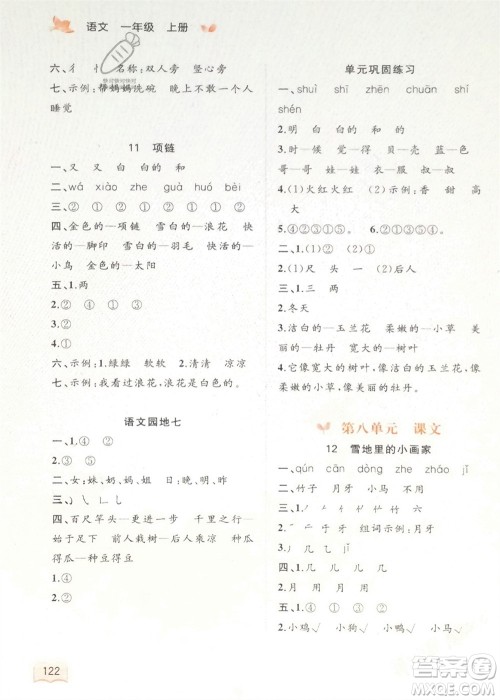 语文 一年级 上册
六、彳 忄 名称：双人旁 竖心旁
七、示例：帮妈妈洗碗 晚上不敢一个人
睡觉
11 项链
一、又 又 白 白的 七
二、wá xiào zhe guà huó bèi
三、② ② ① ② ① ①
四、金色的—项链 雪白的—浪花 快
活的—脚印 雪白的—羽毛 快活的—
小鸟 金色的—太阳
五、1.两
2.② ④ ① ③
3.②
六、示例：1.绿绿 软软 2.清清 凉凉
七、示例：我看过浪花，浪花是白色的。
语文园地七
一、1.④
2.②③⑤
二、女：妹、奶、妈、姐 日：晚、明、昨
三、
四、百尺竿头—更进一步 千里之行—
始于足下 前人栽树—后人乘凉 种瓜
得瓜—种豆得豆
五、1.④
2.②
122
单元巩固练习
一、1.shuǐ shī zhēn chuān shǐ
shén
2.明 明 白 的 和 的
3.时候 觉得 贝壳 蓝色
哥哥 娃娃 衣服 叔叔
4.（1）火红火红 （2）示例：香 甜 高
大
5.④②③⑤①。
二、1.①②④
2.（1）尺 头 一 （2）后人
三、1.两
2.冬天
3.洁白的玉兰花 柔嫩的小草 美丽
的蝴蝶 宽大的树叶
4.它像宽大的树叶，像柔嫩的小草，
像美丽的蝴蝶，像洁白的玉兰花。
第八单元 课文
12 雪地里的小画家
一、qún cān dòng zhe zhào jǐ
二、竹子 月牙 小马 几步
三、竹 牙 用 组词示例：月牙
四、1.几 jǐ
2.马 用 几 鸟
五、1.② ① ④ ③
2.小鸡√ 小狗√ 小鸭√ 小马√